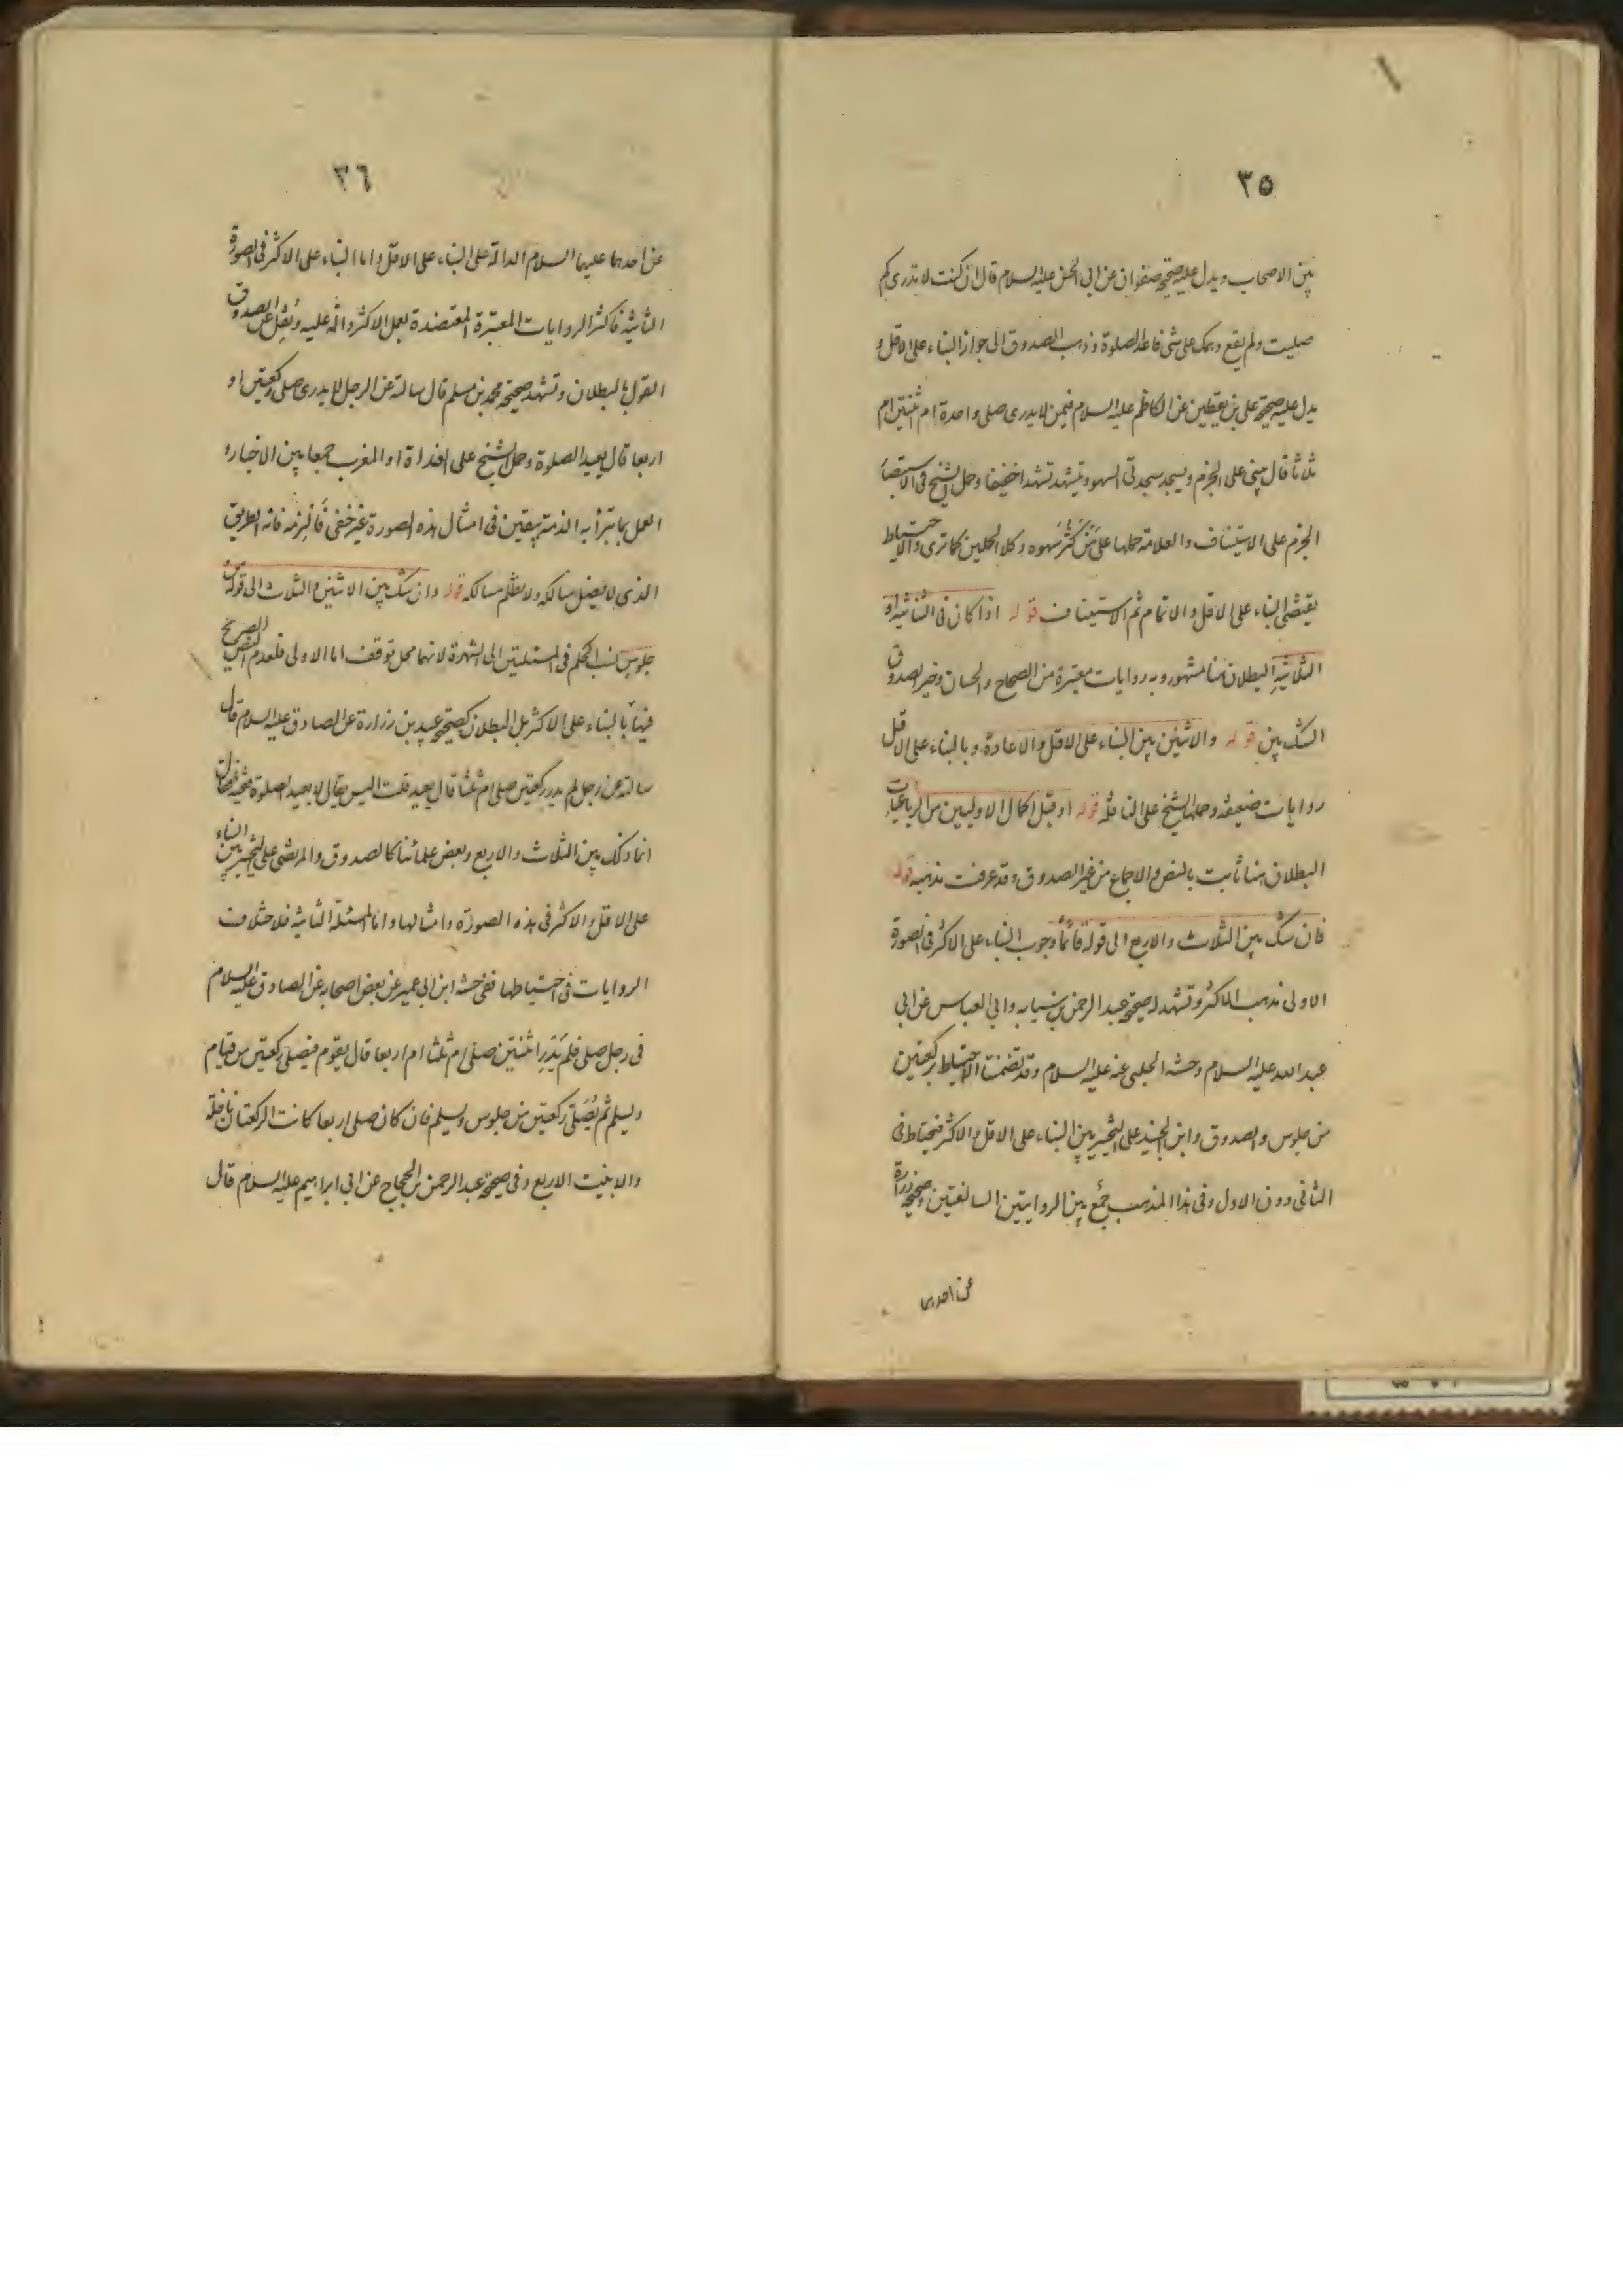 ٣٥
بين الاصحاب ويدل عليه صحيحة صفوان عن ابى الحسن عليه السلام قال ان كنت لا تدرى كم
صليت ولم يقع وهمك على شئ فاعد الصلوة وذهب الصدوق الى جواز البناء على الاقل و
يدل عليه صحيحة على بن يقطين عن الكاظم عليه السلام فيمن لا يدرى صلى واحدة ام ثنتين ام
ثلاثا قال يبنى على الجزم ويسجد سجدتى السهو ويتشهد تشهدا خفيفا وحمل الشيخ فى الاستبصار
الجزم على الاستيناف والعلامة حملها على من كثر سهوه وكلا الحملين كما ترى والاحتياط
يقتضى البناء على الاقل والاتمام ثم الاستيناف قوله اذا كان فى الثنائية او
الثلاثية البطلان هنا مشهور وبه روايات معتبرة من الصحاح والحسان وخير الصدوق
الشك بين قوله والاثنين بين البناء على الاقل والاعادة وبالبناء على الاقل
روايات ضعيفة وحملها الشيخ على النافلة قوله او قبل اكمال الاوليين من الرباعيات
البطلان هنا ثابت بالنص والاجماع من غير الصدوق وقد عرفت مذهبه قوله
فان شك بين الثلاث والاربع الى قوله قائما وجوب البناء على الاكثر فى الصورة
الاولى مذهب الاكثر وتشهد له صحيحة عبد الرحمن بن سيابه وابى العباس عن ابى
عبد الله عليه السلام وحسنة الحلبى عنه عليه السلام وقد تضمنتا الاحتياط بركعتين
من جلوس والصدوق وابن الجنيد على التخيير بين البناء على الاقل والاكثر فيحتاط فى
الثانى دون الاول وفى هذا المذهب جمع بين الروايتين السالفتين وصحيحة زرارة
عن احدهما
٣٦
عن احدهما عليهما السلام الدالة على البناء على الاقل واما البناء على الاكثر فى الصورة
الثانية فاكثر الروايات المعتبرة المعتضدة بعمل الاكثر دالة عليه ونقل عن الصدوق
القول بالبطلان وتشهد صحيحة محمد بن مسلم قال سالته عن الرجل لا يدرى صلى ركعتين او
اربعا قال يعيد الصلوة وحمل الشيخ على الغداة او المغرب جمعا بين الاخبار و
العمل بما تبرأ به الذمة بيقين فى امثال هذه الصورة غير خفى فالزمه فانه الطريق
الذى لا يضل سالكه ولا يظلم مسالكه قوله وان شك بين الاثنين والثلاث الى قوله من
جلوس نسب الحكم فى المسئلتين الى الشهرة لانهما محل توقف اما الاولى فلعدم النص الصريح
فيها بالبناء على الاكثر بل البطلان كصحيحة عبيد بن زرارة عن الصادق عليه السلام قال
سالته عن رجل لم يدر ركعتين صلى ام ثلثا قال يعيد قلت اليس يقال لا يعيد الصلوة فقيه فقال
انما ذلك بين الثلاث والاربع وبعض علمائنا كالصدوق والمرتضى على التخيير بين البناء
على الاقل والاكثر فى هذه الصورة وامثالها واما المسئلة الثانية فلاختلاف
الروايات فى احتياطها ففى حسنة ابن ابى عمير عن بعض اصحابه عن الصادق عليه السلام
فى رجل صلى فلم يدر اثنتين صلى ام ثلثا ام اربعا قال يقوم فيصلى ركعتين من قيام
ويسلم ثم يصلى ركعتين من جلوس ويسلم فان كان صلى اربعا كانت الركعتان نافلة
والا بنيت الاربع وفى صحيحة عبد الرحمن بن الحجاج عن ابى ابراهيم عليه السلام قال